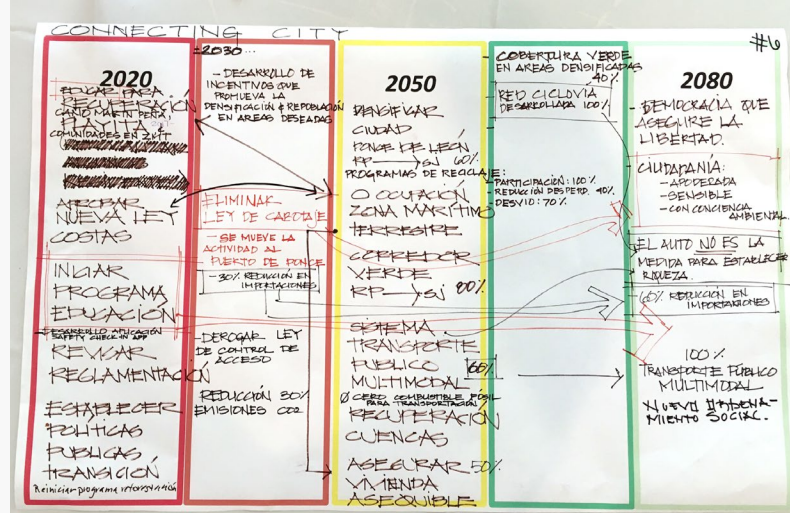 CONNECTING CITY
#6
2020
EDUCAR PARA
RECUPERACIÓN
CAÑO MARTIN PEÑA
PUNTA
COMUNIDADES EN ZMT
APROBAR
NUEVA LEY
COSTAS
INICIAR
PROGRAMA
EDUCACIÓN
DESARROLLO APLICACIÓN
SAFETY CHECK-IN APP
REVISAR
REGLAMENTACIÓN
ESTABLECER
POLITICAS
PUBLICAS
TRANSICIÓN
Reiniciar programa reforestación
±2030...
- DESARROLLO DE
INCENTIVOS QUE
PROMUEVA LA
DENSIFICACIÓN & REPOBLACIÓN
EN AREAS DESEADAS
ELIMINAR
LEY DE CABOTAJE
- SE MUEVE LA
ACTIVIDAD AL
PUERTO DE PONCE
- 30% REDUCCIÓN EN
IMPORTACIONES
- DEROGAR LEY
DE CONTROL DE
ACCESO
REDUCCIÓN 30%
EMISIONES CO2
2050
DENSIFICAR
CIUDAD
PONCE DE LEÓN
RP → SJ 60%
PROGRAMAS DE RECICLAJE:
O OCUPACIÓN
ZONA MARÍTIMO
TERRESTRE
CORREDOR
VERDE
RP → SJ 80%
SISTEMA
TRANSPORTE
PUBLICO 66%
MULTIMODAL
Ø CERO COMBUSTIBLE FOSIL
PARA TRANSPORTACIÓN
RECUPERACIÓN
CUENCAS
ASEGURAR 50%
VIVIENDA
ASEQUIBLE
- COBERTURA VERDE
EN AREAS DENSIFICADAS
40%
- RED CICLOVIA
DESARROLLADA 100%
- PARTICIPACIÓN: 100%
- REDUCCIÓN DESPERD. 40%
- DESVIO: 70%
2080
- DEMOCRACIA QUE
ASEGURE LA
LIBERTAD.
CIUDADANÍA:
- APODERADA
- SENSIBLE
- CON CONCIENCIA
AMBIENTAL.
EL AUTO NO ES LA
MEDIDA PARA ESTABLECER
RIQUEZA.
- 60% REDUCCIÓN EN
IMPORTACIONES
100%
TRANSPORTE PÚBLICO
MULTIMODAL
NUEVO ORDENA-
MIENTO SOCIAL.